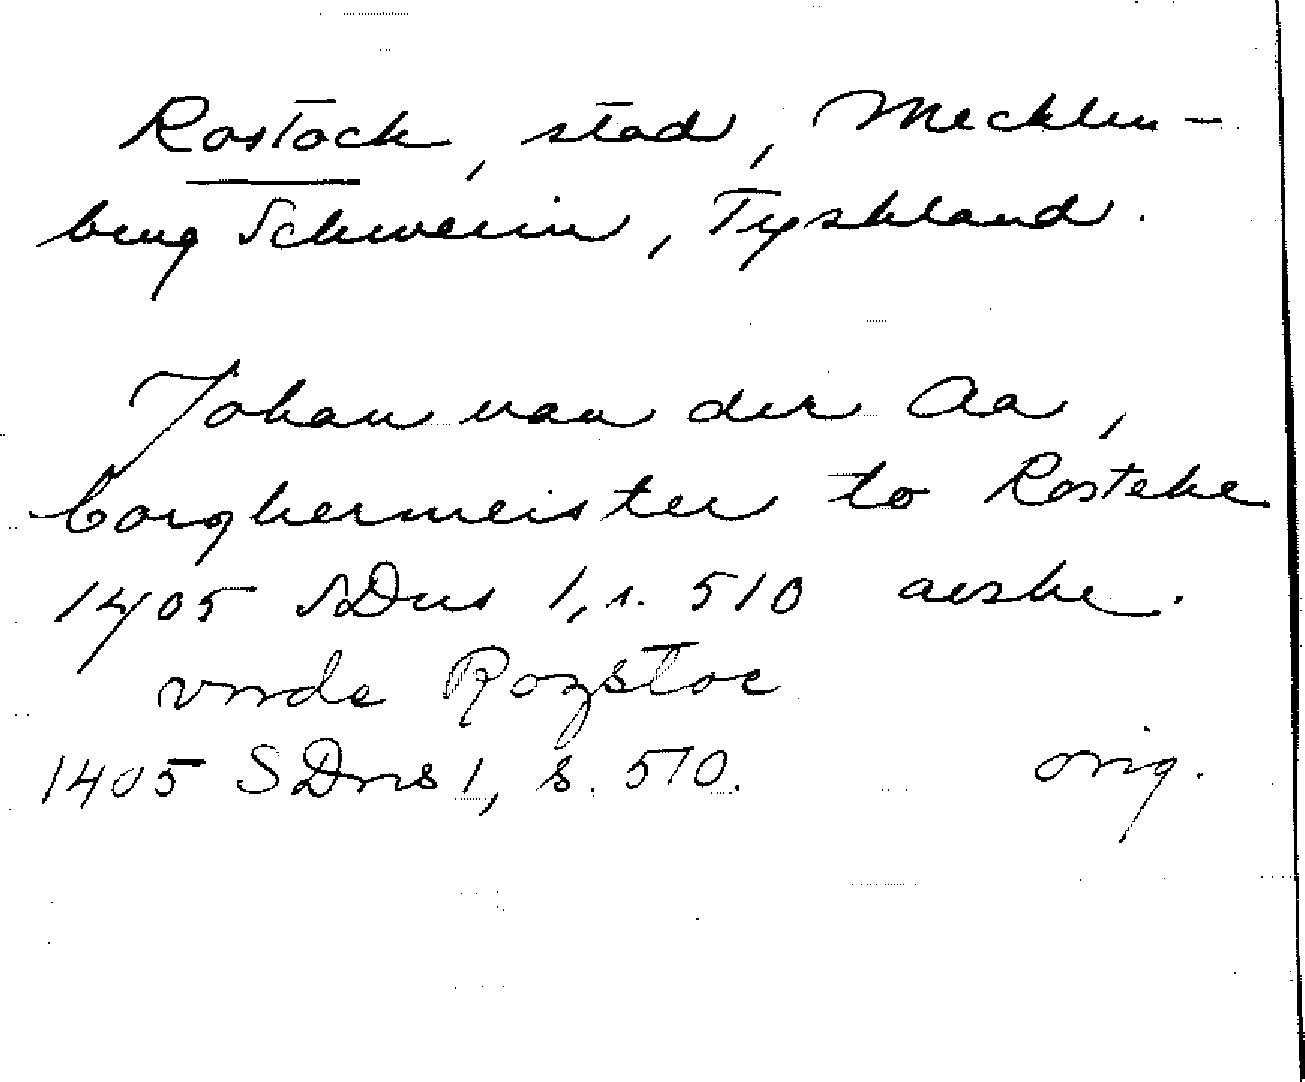 Rostock, stad, Mecklen-
burg Schwerin, Tyskland.
Johan van der Aa,
borghermeister to Rosteke
1405 SDns 1, s. 510 avskr.
vnde Rozstoc
1405 SDns 1, s. 510. orig.